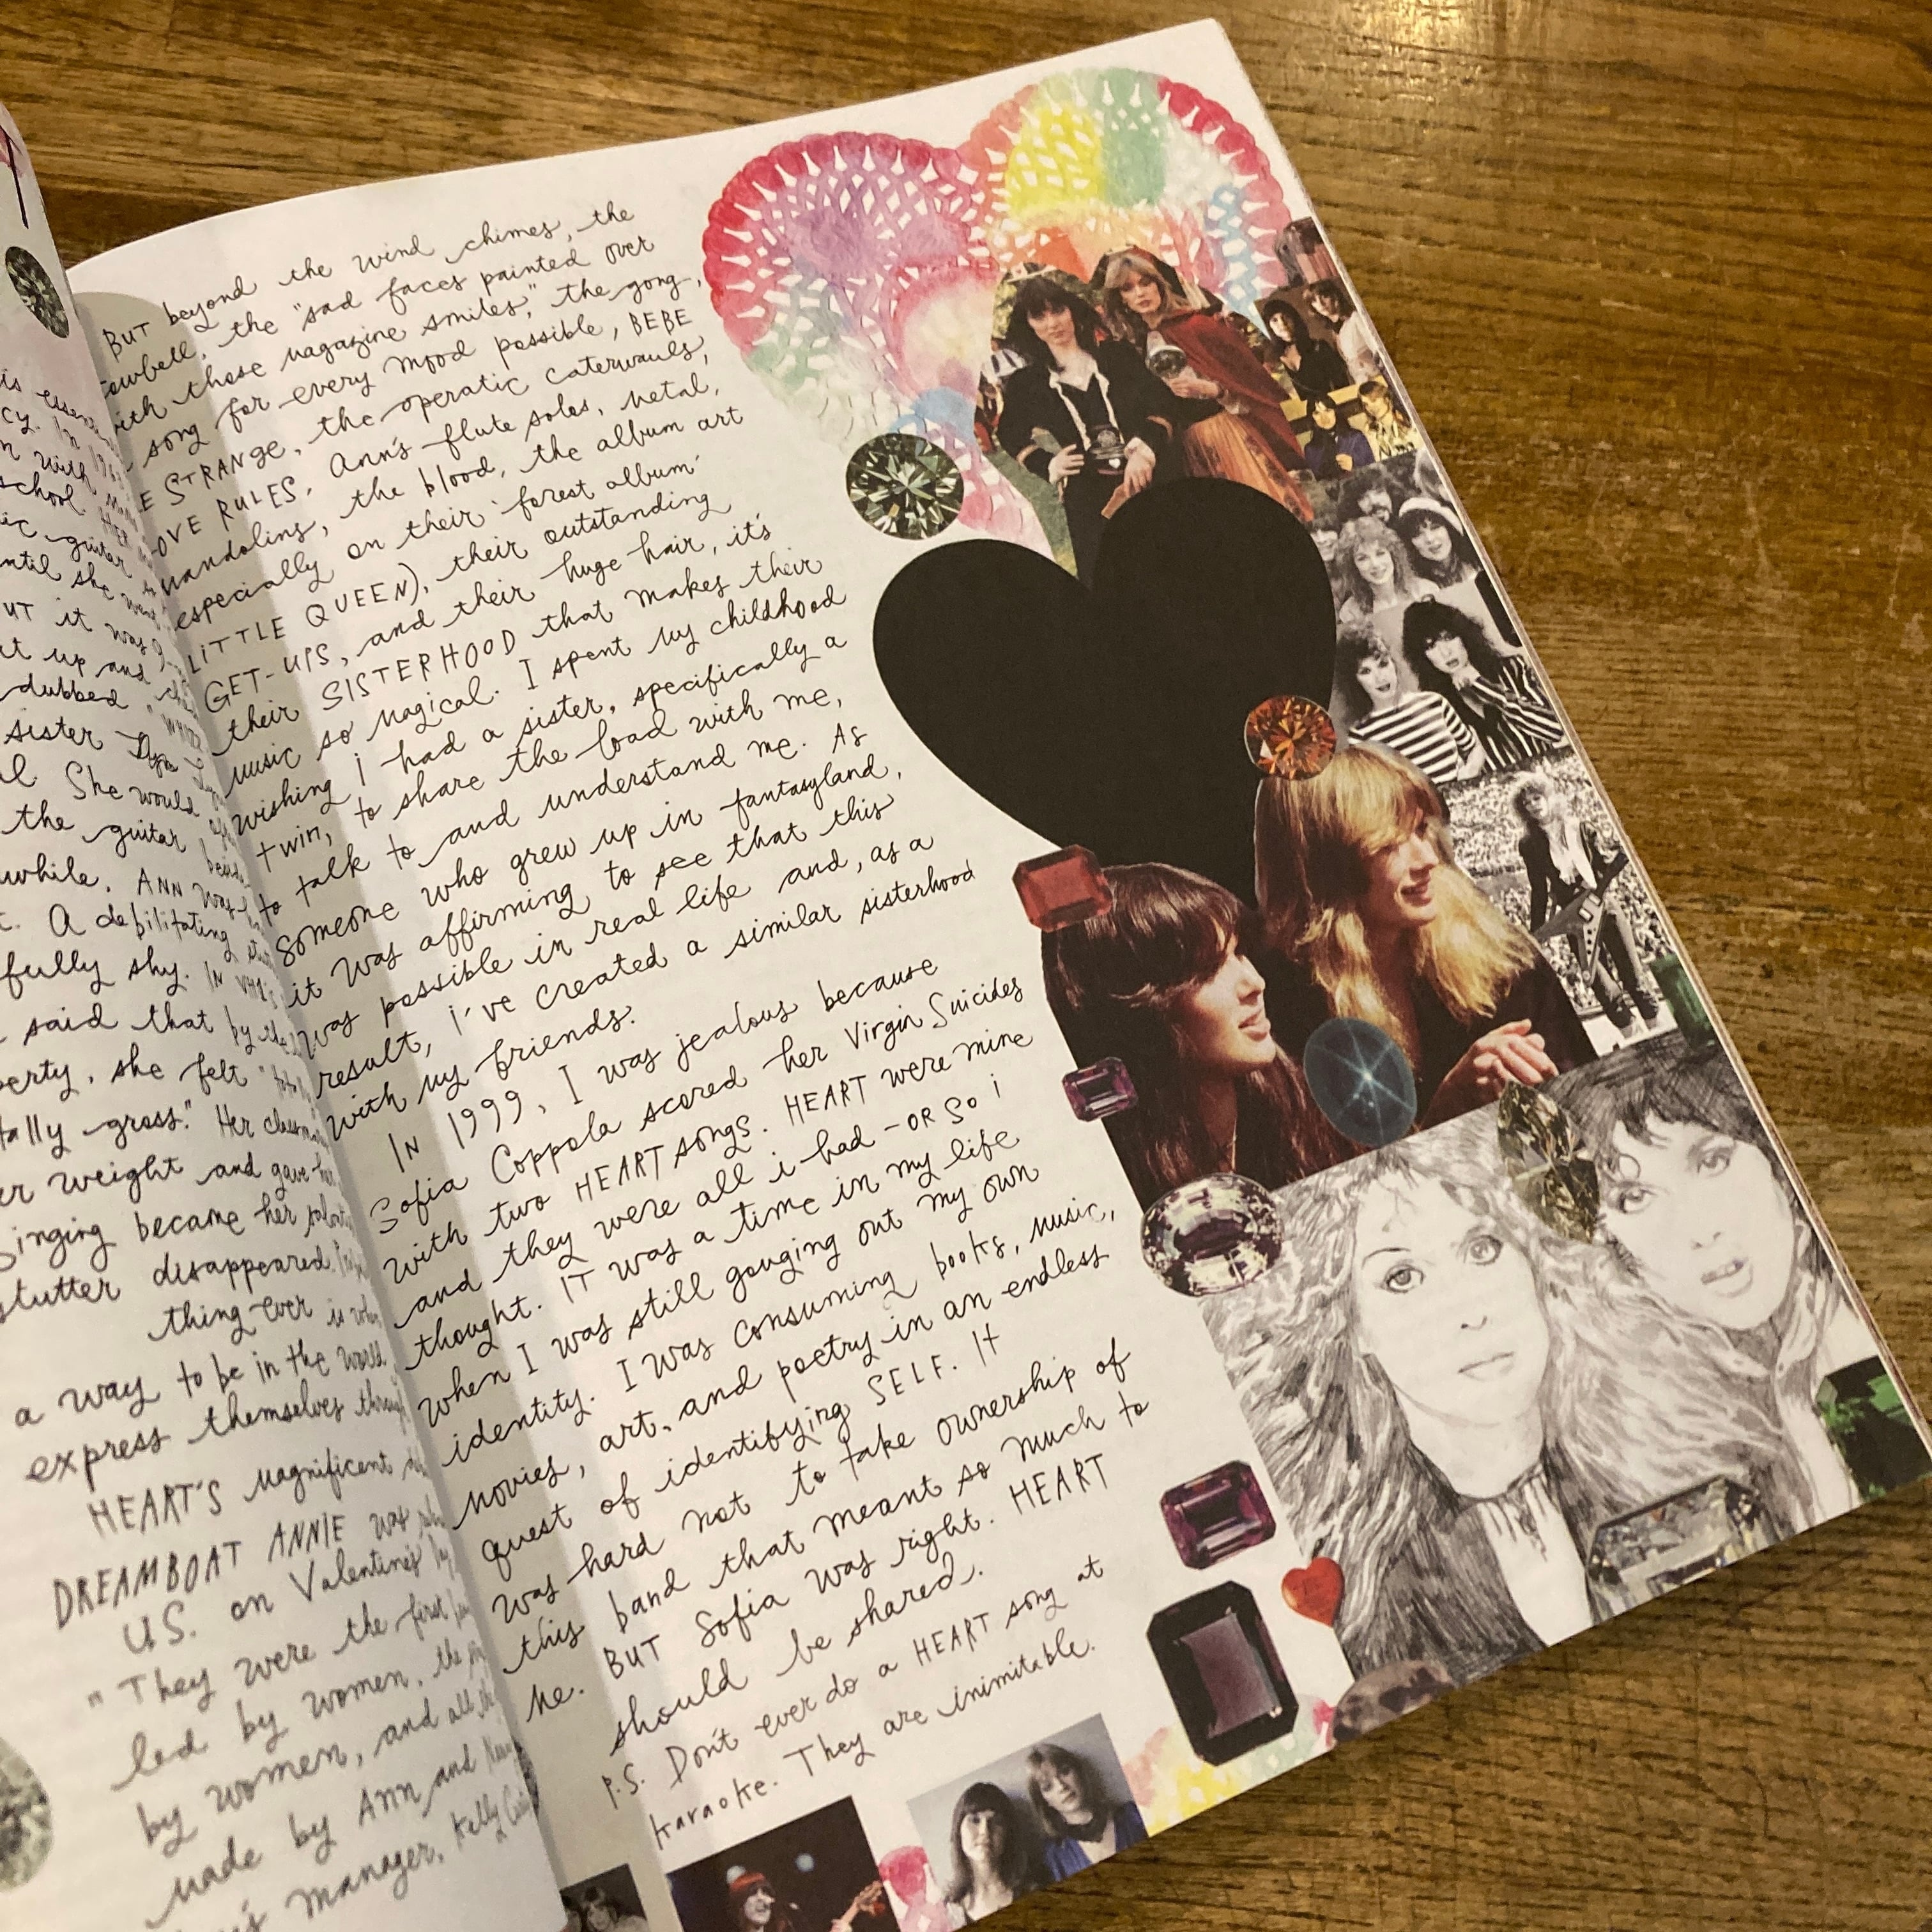 is essen
cy. In 196
n with
school
ic guitar
ntil she went
UT it was
t up and
dubbed
sister
l. She would
the guitar
while, ANN was
t. A debilitating
fully shy. IN VH1's
said that by the
erty, she felt
tally gross." Her classma
er weight and gave her
Singing became her
stutter disappeared.
thing ever is when
a way to be in the world,
express themselves through
HEART'S magnificent
DREAMBOAT ANNIE was
U.S. on Valentine's
"They were the first
led by women, the
by women, and all the
made by Ann and
manager, Kelly
BUT beyond the wind chimes, the
cowbell, the "sad faces painted over
with those magazine smiles," the gong,
song for every mood possible, BEBE
E STRANGE, the operatic caterwauls,
OVE RULES, Ann's flute solos, metal,
mandolins, the blood, the album art
especially on their 'forest album'
LITTLE QUEEN), their outstanding
GET-UPS, and their huge hair, it's
their SISTERHOOD that makes their
music so magical. I spent my childhood
wishing I had a sister, specifically a
twin, to share the load with me,
to talk to and understand me. As
someone who grew up in fantasyland,
it was affirming to see that this
was possible in real life and, as a
result, i've created a similar sisterhood
with my friends.
IN 1999, I was jealous because
Sofia Coppola scored her Virgin Suicides
with two HEART songs. HEART were mine
and they were all i had - OR SO i
thought. IT was a time in my life
when I was still gouging out my own
identity. I was consuming books, music,
movies, art, and poetry in an endless
quest of identifying SELF. It
was hard not to take ownership of
this band that meant so much to
me. BUT Sofia was right. HEART
should be shared.
P.S. Don't ever do a HEART song at
karaoke. They are inimitable.